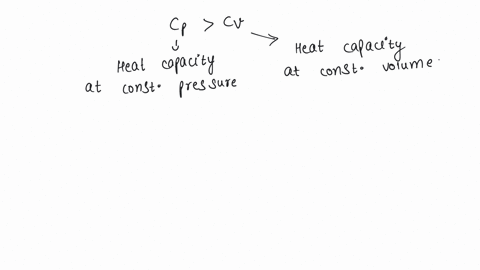 Cp > Cv
Heat capacity
at const. pressure
Heat capacity
at const. volume.